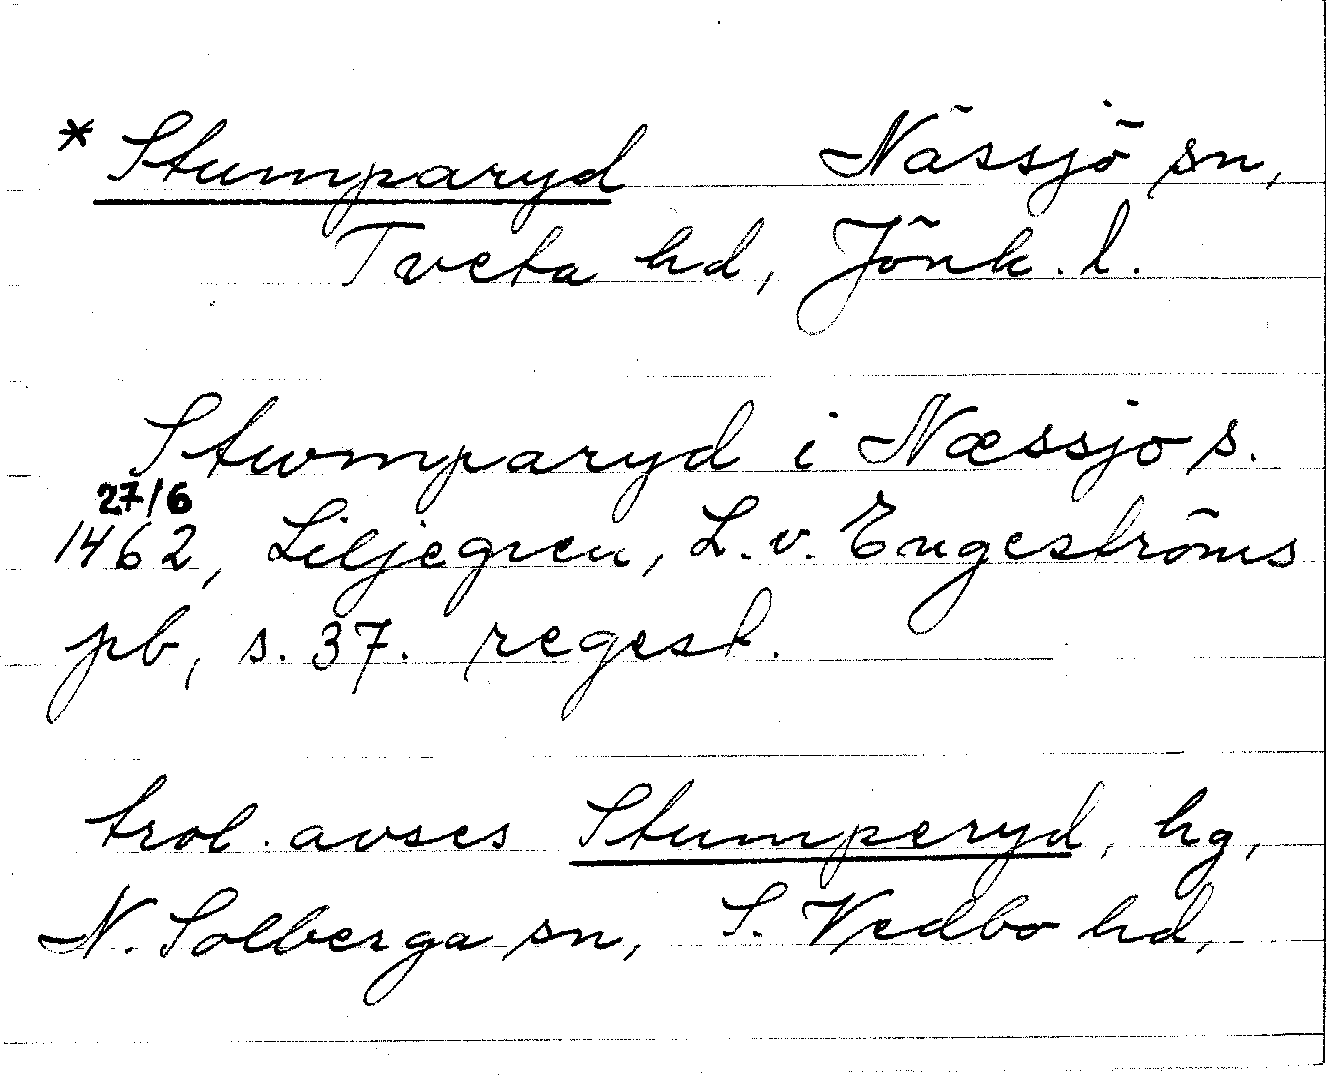 * Stumparyd Nässjö sn,
Tveta hd, Jönk. l.
Stwmparyd i Næssjo s.
27/6
1462, Liljegren, L. v. Engeströms
pb, s. 37. regest.
trol. avses Stumperyd, hg,
N. Solberga sn, S. Vedbo hd,